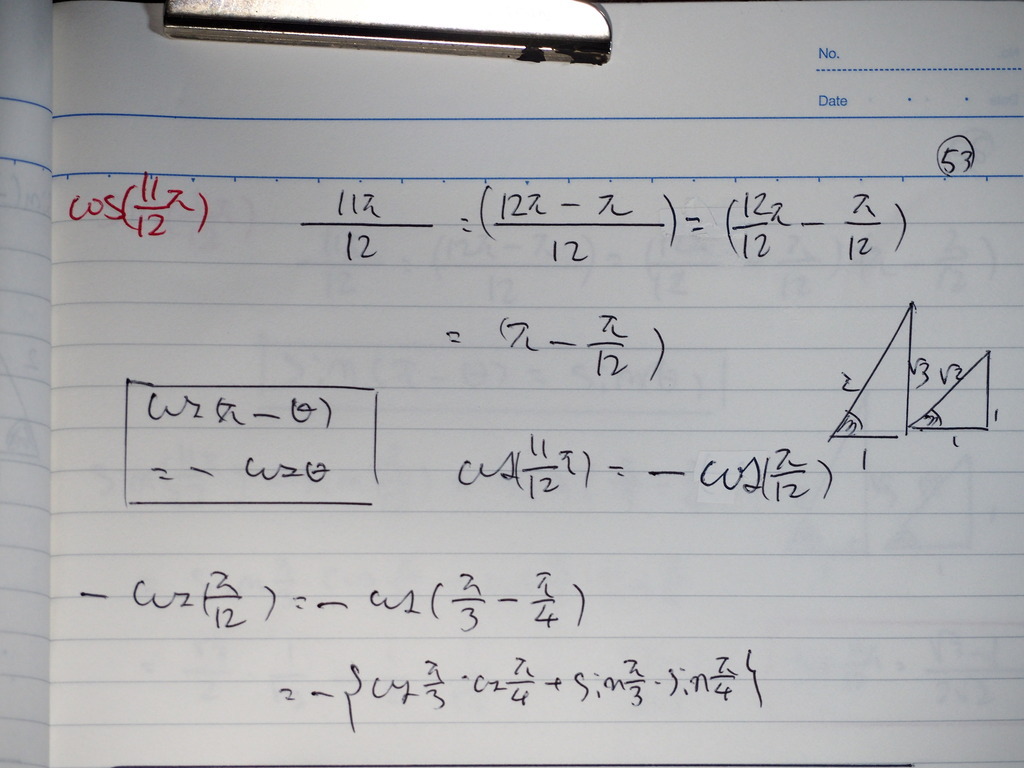 No.
Date
53
cos(11/12 π) 11π/12 = (12π - π / 12) = (12π/12 - π/12)
= (π - π/12)
2 √3 √2 1 1 1
cos(π - θ)
= - cosθ
cos(11/12 π) = - cos(π/12)
- cos(π/12) = - cos(π/3 - π/4)
= - {cos π/3 · cos π/4 + sin π/3 · sin π/4}